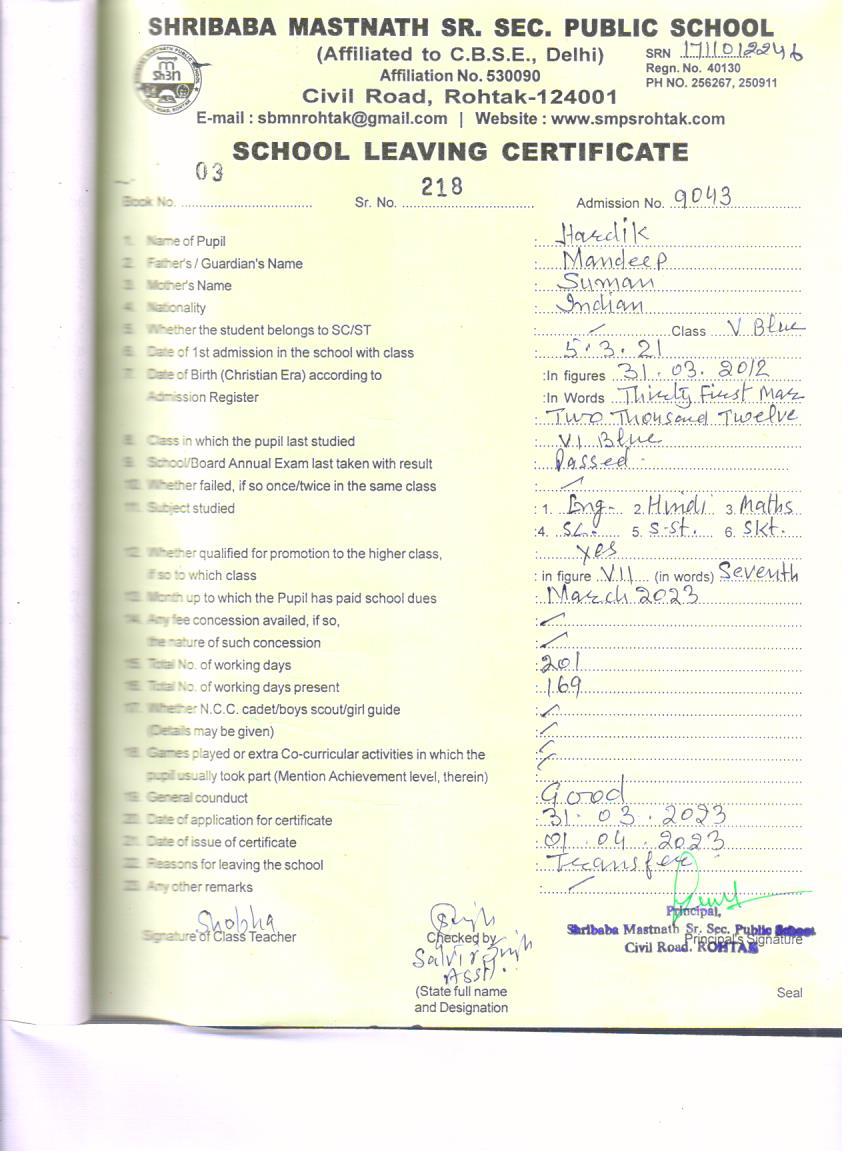 SHRIBABA MASTNATH SR. SEC. PUBLIC SCHOOL
(Affiliated to C.B.S.E., Delhi)
SRN 1711012246
Affiliation No. 530090
Regn. No. 40130
PH NO. 256267, 250911
Civil Road, Rohtak-124001
E-mail : sbmnrohtak@gmail.com | Website : www.smpsrohtak.com
SCHOOL LEAVING CERTIFICATE
Book No. 03 Sr. No. 218 Admission No. 9043
1. Name of Pupil : Hardik
2. Father's / Guardian's Name : Mandeep
3. Mother's Name : Suman
4. Nationality : Indian
5. Whether the student belongs to SC/ST : Class V Blue
6. Date of 1st admission in the school with class : 5.3.21
7. Date of Birth (Christian Era) according to :In figures 31.03.2012
Admission Register :In Words Thirty First Mar
: Two Thousand Twelve
8. Class in which the pupil last studied : VI Blue
9. School/Board Annual Exam last taken with result : Passed
10. Whether failed, if so once/twice in the same class :
11. Subject studied : 1. Eng. 2. Hindi 3. Maths
:4. Sc. 5. S.St. 6. Skt.
12. Whether qualified for promotion to the higher class, : yes
if so to which class : in figure VII (in words) Seventh
13. Month up to which the Pupil has paid school dues : March 2023
14. Any fee concession availed, if so, :
the nature of such concession :
15. Total No. of working days : 201
16. Total No. of working days present : 169
17. Whether N.C.C. cadet/boys scout/girl guide :
(Details may be given) :
18. Games played or extra Co-curricular activities in which the :
pupil usually took part (Mention Achievement level, therein) :
19. General counduct : Good
20. Date of application for certificate : 31.03.2023
21. Date of issue of certificate : 01.04.2023
22. Reasons for leaving the school : Transfer
23. Any other remarks :
Shobha
Signature of Class Teacher
Checked by
Asst.
(State full name
and Designation
Principal,
Shribaba Mastnath Sr. Sec. Public School
Principal's Signature
Civil Road. ROHTAK
Seal